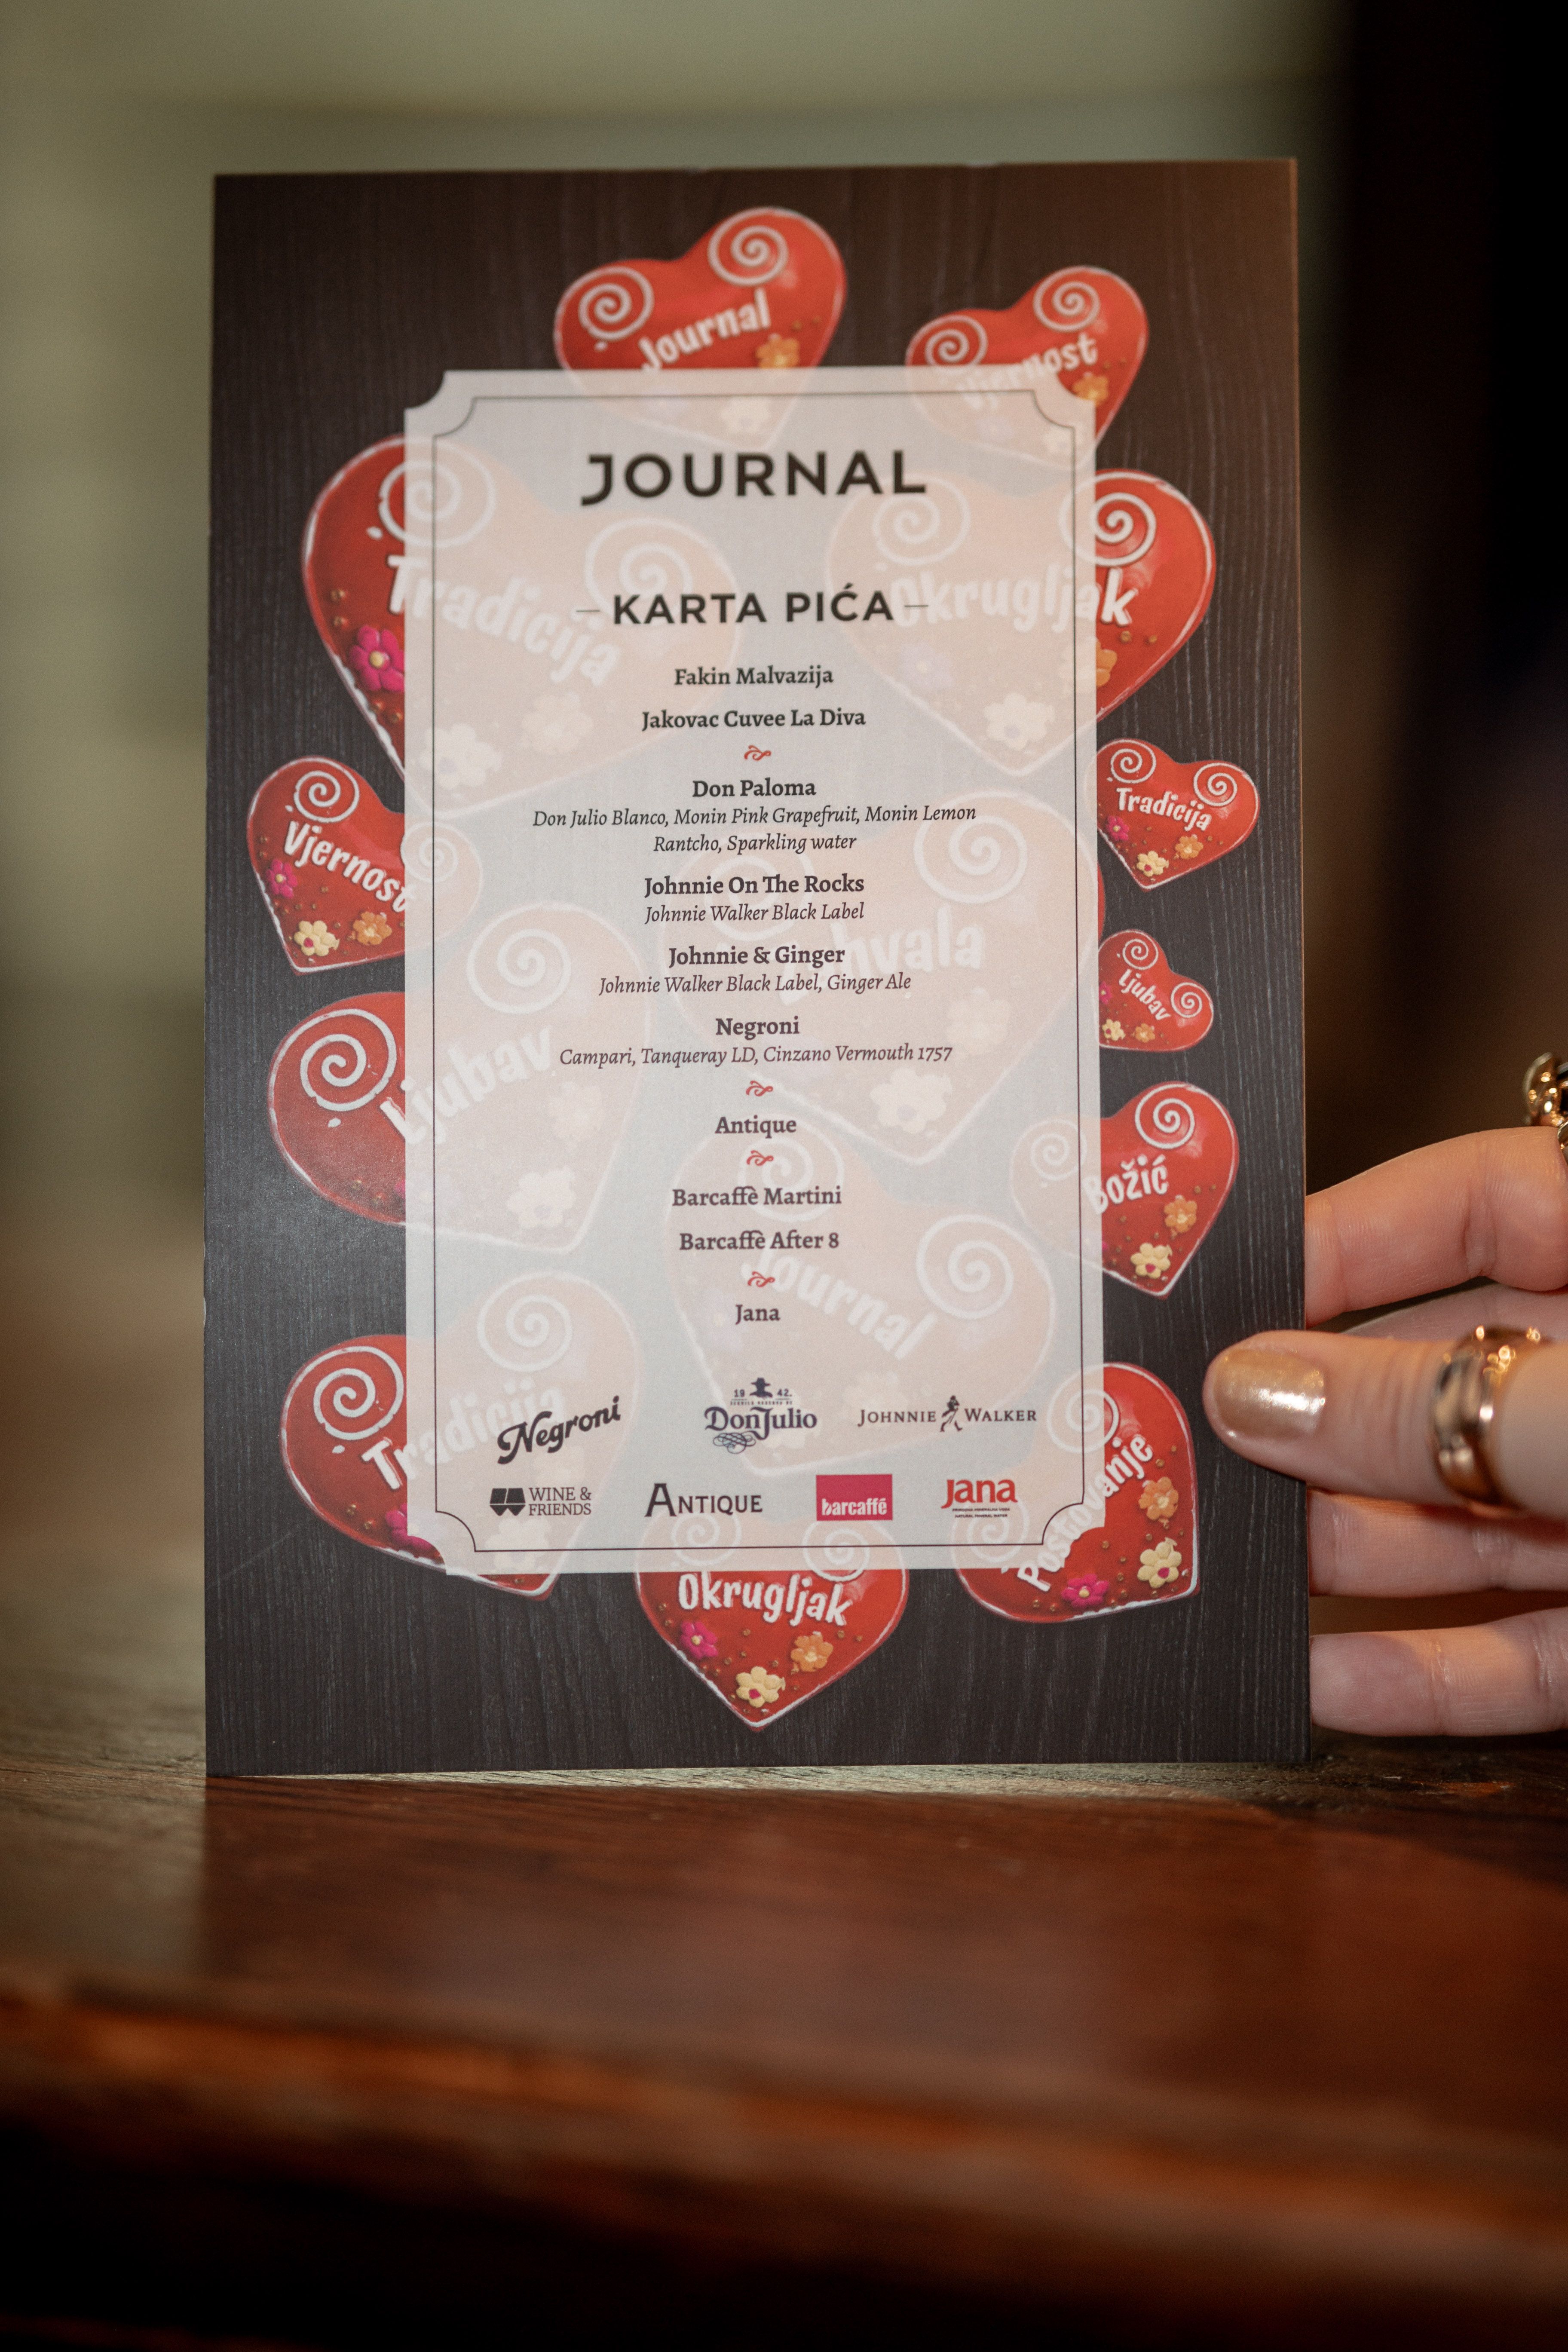 Journal
Vjernost
JOURNAL
Tradicija
Okrugljak
KARTA PIĆA
Fakin Malvazija
Jakovac Cuvee La Diva
Don Paloma
Don Julio Blanco, Monin Pink Grapefruit, Monin Lemon
Rantcho, Sparkling water
Tradicija
Vjernost
Johnnie On The Rocks
Johnnie Walker Black Label
Johnnie & Ginger
Johnnie Walker Black Label, Ginger Ale
Ljubav
Negroni
Campari, Tanqueray LD, Cinzano Vermouth 1757
Ljubav
Antique
Božić
Barcaffè Martini
Barcaffè After 8
Journal
Jana
Tradicija
Negroni
19 42.
Don Julio
JOHNNIE WALKER
WINE &
FRIENDS
ANTIQUE
barcaffè
Jana
Poštovanje
Okrugljak